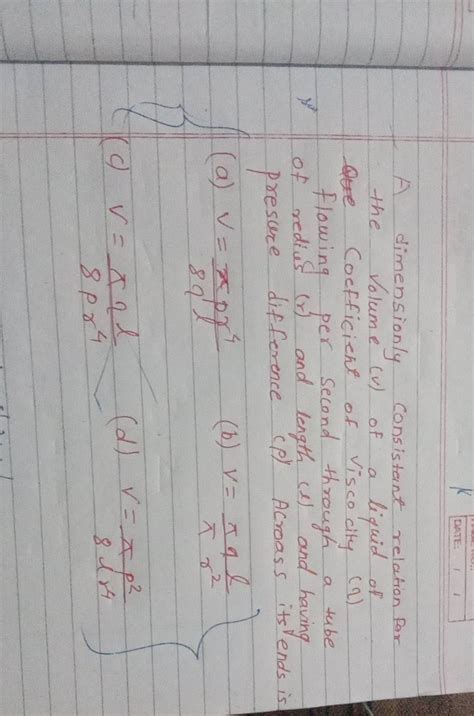 DATE: / /
A dimensionly consistant relation for
the volume (v) of a liquid of
Coefficient of Viscocity (η)
flowing per second through a tube
of redius (r) and length (l) and having
presure difference (p) Acroass its ends is
(a) v = πpr⁴/8ηl (b) v = πηl/πr²
(c) v = πηl/8pr⁴ (d) v = πp²/8lr⁴